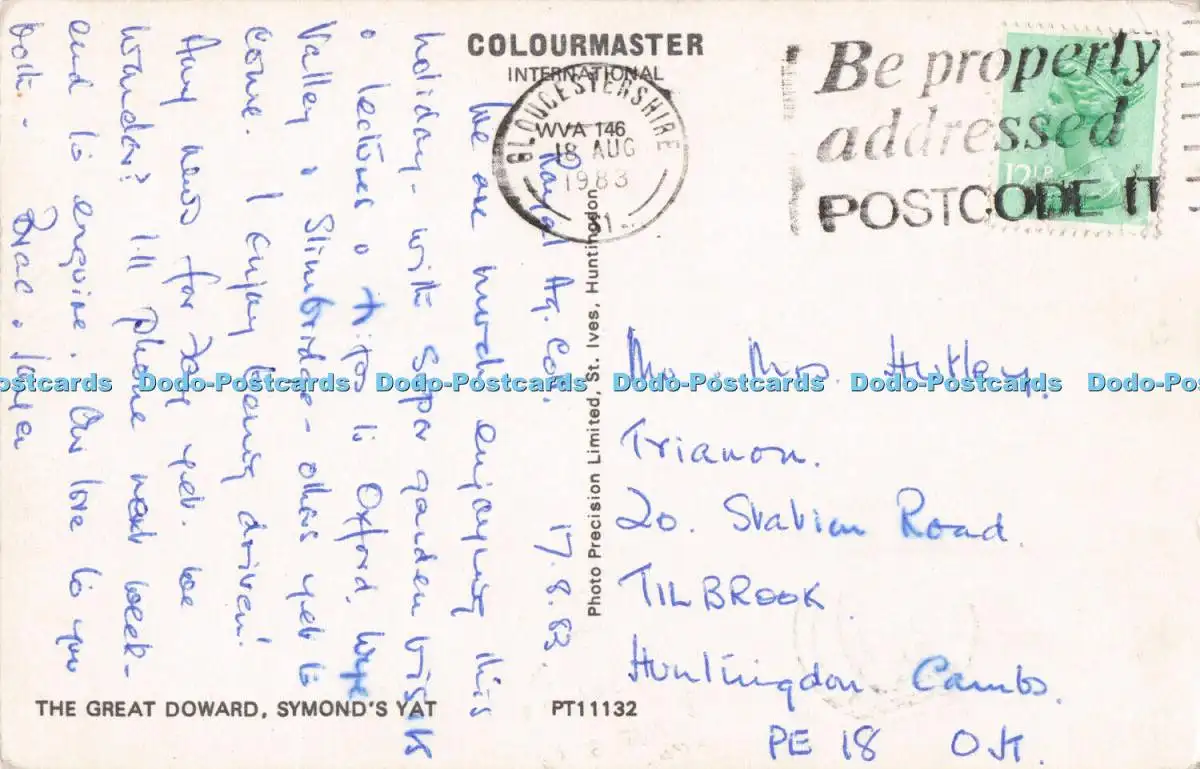 COLOURMASTER
INTERNATIONAL
WVA 146
GLOUCESTERSHIRE
18 AUG
1983
Be property
addressed
POSTCODE IT
12½P
Royal Ag. Co. 17.8.83.
We are much enjoying this
holiday - with super garden visits
& lectures & trips to Oxford, Wye
Valley & Slimbridge - others yet to
come. I enjoy being driven!
Any news for yet. we
wonder? I'll phone next week -
end to enquire. Our love to you
both.
Mr. Mrs. Hutley.
Trianon.
20. Station Road.
TILBROOK.
Huntingdon. Cambs.
PE 18 OJT.
Photo Precision Limited, St. Ives, Huntingdon
THE GREAT DOWARD, SYMOND'S YAT
PT11132
Dodo-Postcards Dodo-Postcards Dodo-Postcards Dodo-Postcards Dodo-Postcards Dodo-Postcards